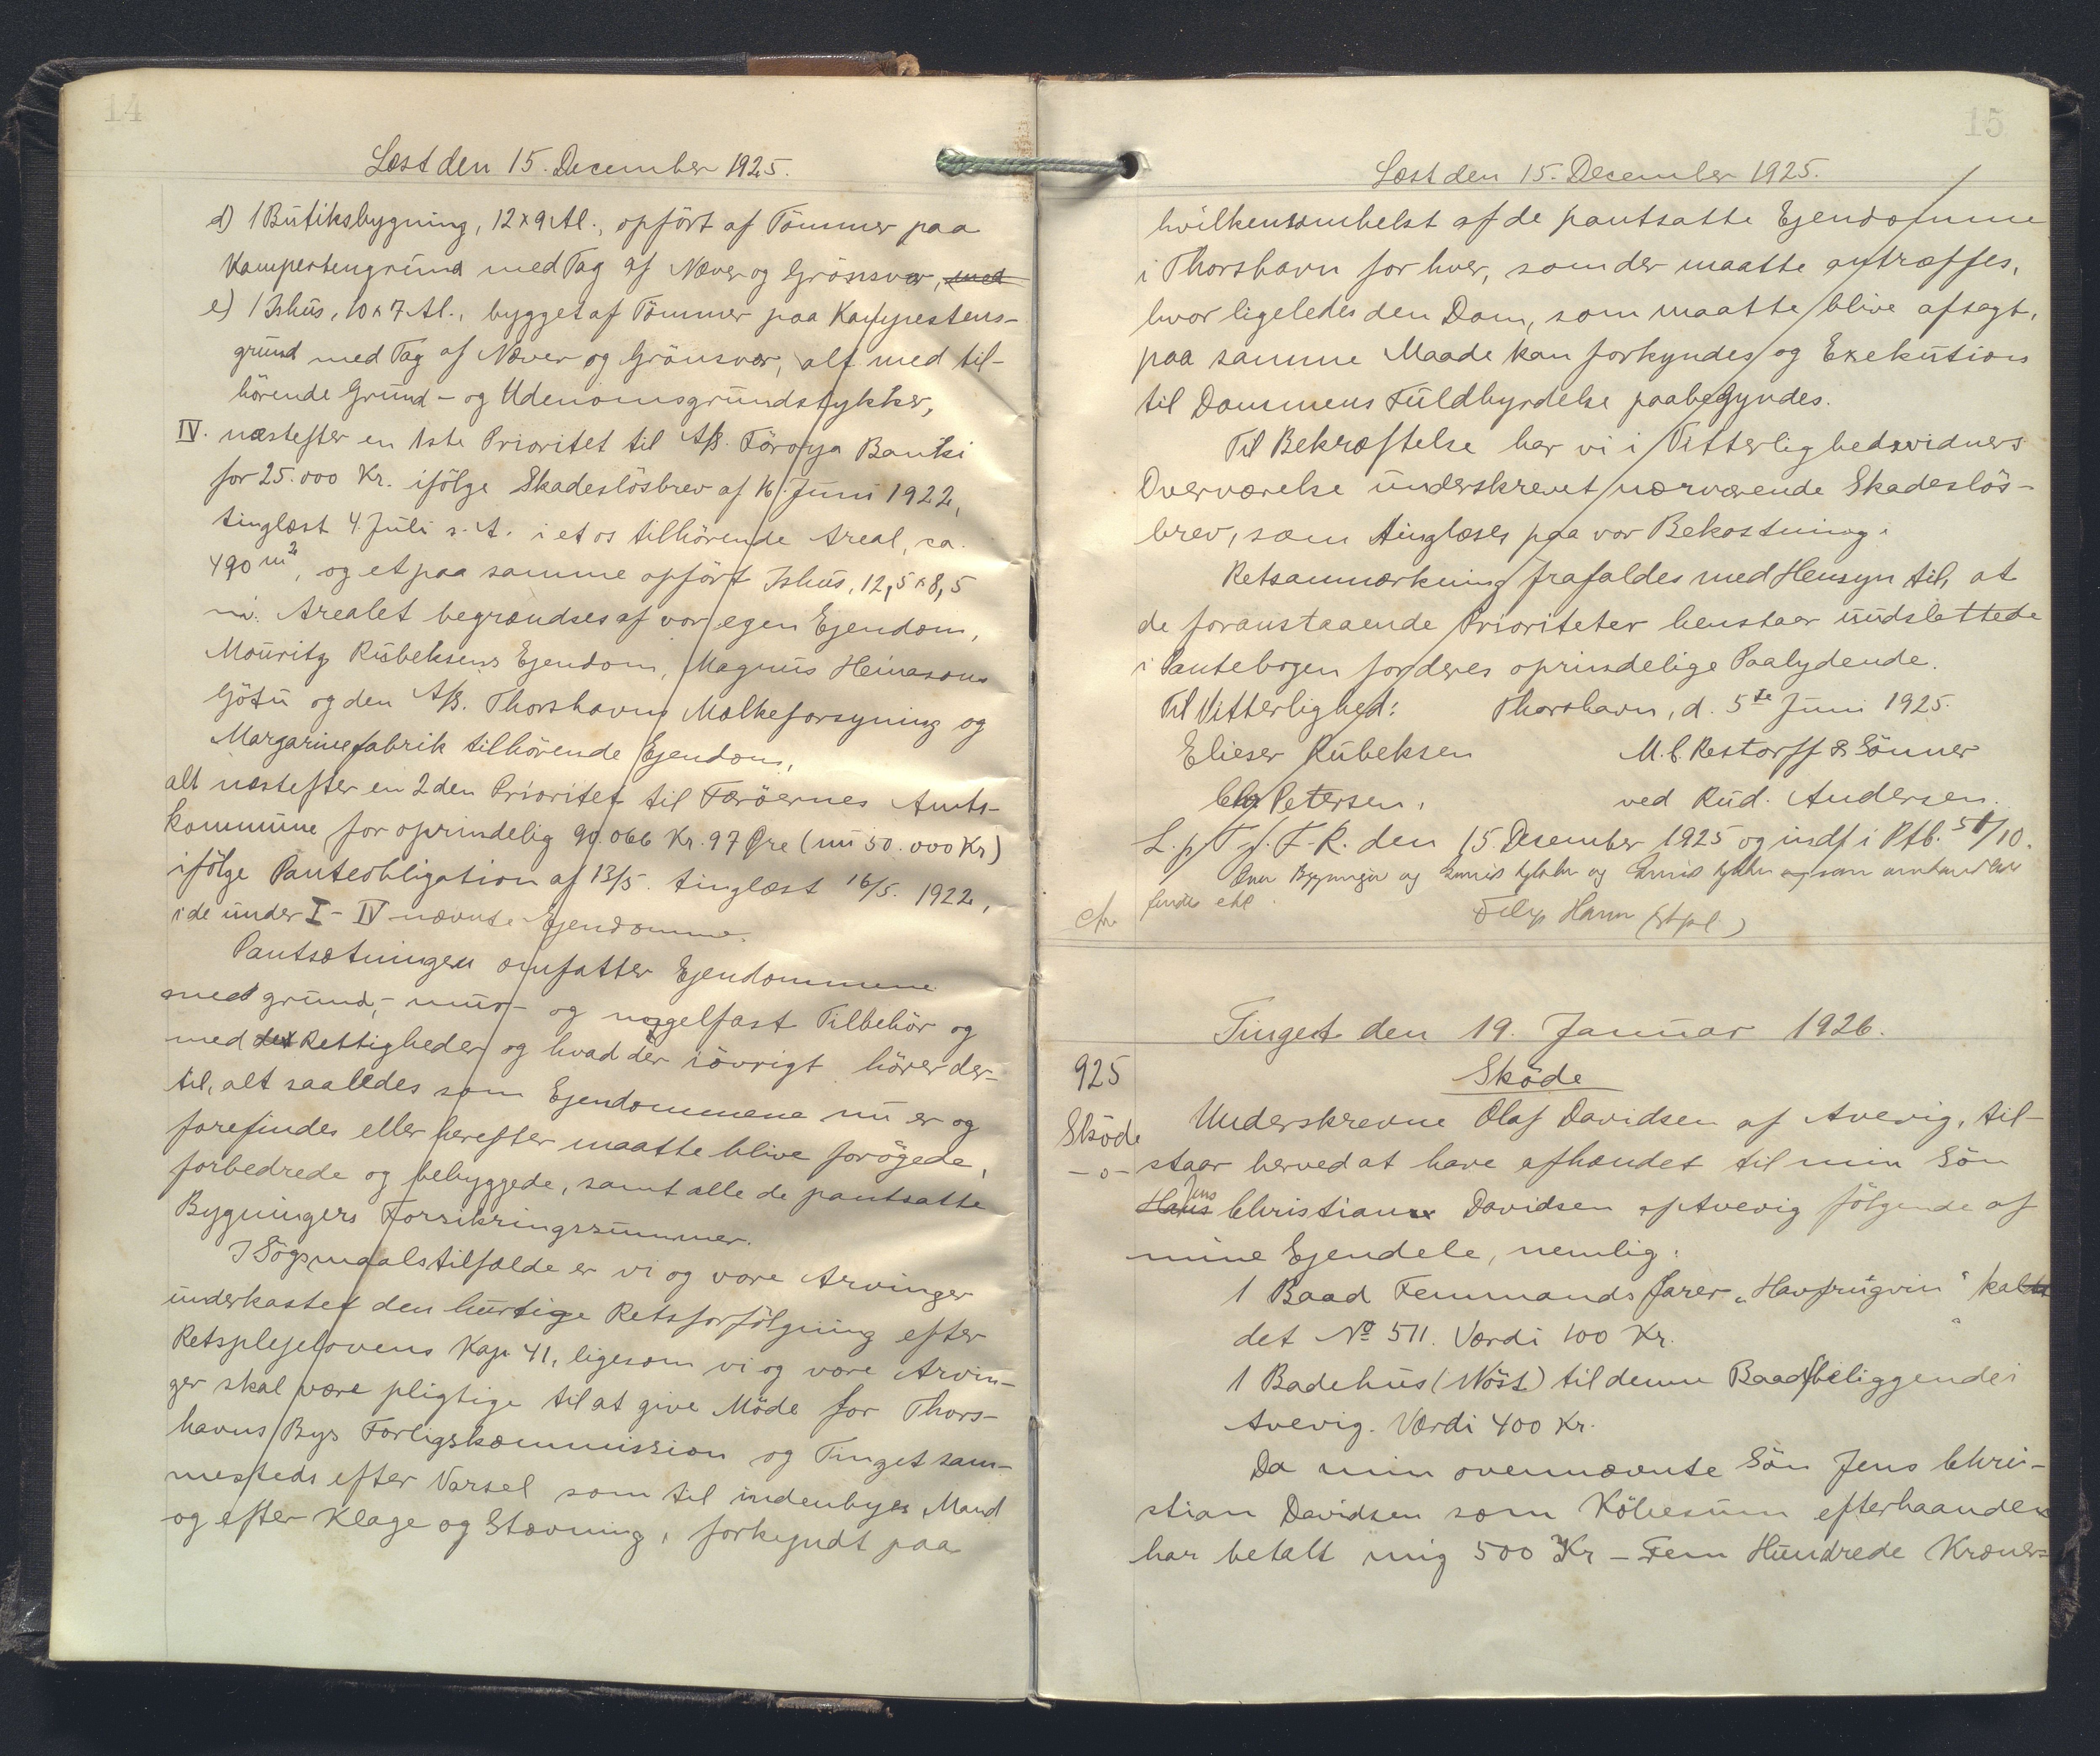 14
Læst den 15. December 1925.
d) 1 Butiksbygning, 12 x 9 Al., opfört af Tömmer paa
Kampestengrund med Tag af Næver og Grönsvær, med
e) 1 Ishus, 10 x 7 Al., bygget af Tömmer paa Kampestens-
grund med Tag af Næver og Grönsvær, alt med til-
hörende Grund- og Udenomsgrundstykker,
IV. næstefter en 1ste Prioritet til A/S. Föroya Banki
for 25.000 Kr. ifölge Skadeslösbrev af 16. Juni 1922,
tinglæst 4. Juli s. A. i et os tilhörende Areal, ca.
490 m², og et paa samme opfört Ishus, 12,5 x 8,5
m. Arealet begrændses af vor egen Ejendom,
Mouritz Rubeksens Ejendom, Magnus Heinasons
Götu og den A/S. Thorshavns Mælkeforsyning og
Margarinefabrik tilhörende Ejendom,
alt næstefter en 2den Prioritet til Færöernes Amts-
kommune for oprindelig 90.066 Kr. 97 Øre (nu 50.000 Kr)
ifölge Panteobligation af 13/5. tinglæst 16/5. 1922,
i de under I - IV nævnte Ejendomme.
Pantsætningen omfatter Ejendommene
med grund,- mur- og nagelfast Tilbehör og
med det Rettigheder og hvad der iövrigt hörer der-
til, alt saaledes som Ejendommene nu er og
forefindes eller herefter maatte blive forögede,
forbedrede og bebyggede, samt alle de pantsatte
Bygningers Forsikringssummer.
I Sögsmaalstilfælde er vi og vore Arvinger
underkastet den hurtige Retsforfölgning efter
Retsplejelovens Kap. 41, ligesom vi og vore Arvin-
ger skal være pligtige til at give Möde for Thors-
havns Bys Forligskommission og Tinget sam-
mesteds efter Varsel som til indenbys Mand
og efter Klage og Stævning, forkyndt paa
15
Læst den 15. December 1925.
hvilkensomhelst af de pantsatte Ejendomme
i Thorshavn for hver, som der maatte antræffes,
hvor ligeledes den Dom, som maatte blive afsagt,
paa samme Maade kan forkyndes og Exekution
til Dommens Fuldbyrdelse paabegyndes.
Til Bekræftelse har vi i Vitterlighedsvidners
Overværelse underskrevet nærværende Skadeslös-
brev, som tinglæses paa vor Bekostning.
Retsanmærkning frafaldes med Hensyn til, at
de foranstaaende Prioriteter henstaar uudslettede
i Pantebogen for deres oprindelige Paalydende.
Til Vitterlighed: Thorshavn, d. 5te Juni 1925.
Elieser Rubeksen M. C. Restorff & Sönner
Chr Petersen. ved Rud. Andersen.
L. p. T. f. F. R. den 15 Desember 1925 og indf i Ptb. 51/10.
Bygninger og og som
Filip Hamm (stpl.)
Tinget den 19. Januar 1926.
925 Sköde
Sköde Underskrevne Olaf Davidsen af Avevig, til-
-o- staar herved at have afhændet til min Sön
Hans Jens Christian Davidsen af Avevig fölgende af
mine Ejendele, nemlig:
1 Baad Femmandsfarer „Havfrugvin" kald
det No 511. Værdi 100 Kr.
1 Badehus (Nöst) til denne Baad beliggende i
Avevig. Værdi 400 Kr.
Da min ovennævnte Sön Jens Chri-
stian Davidsen som Köbesum efterhaanden
har betalt mig 500 Kr - Fem Hundrede Kroner-